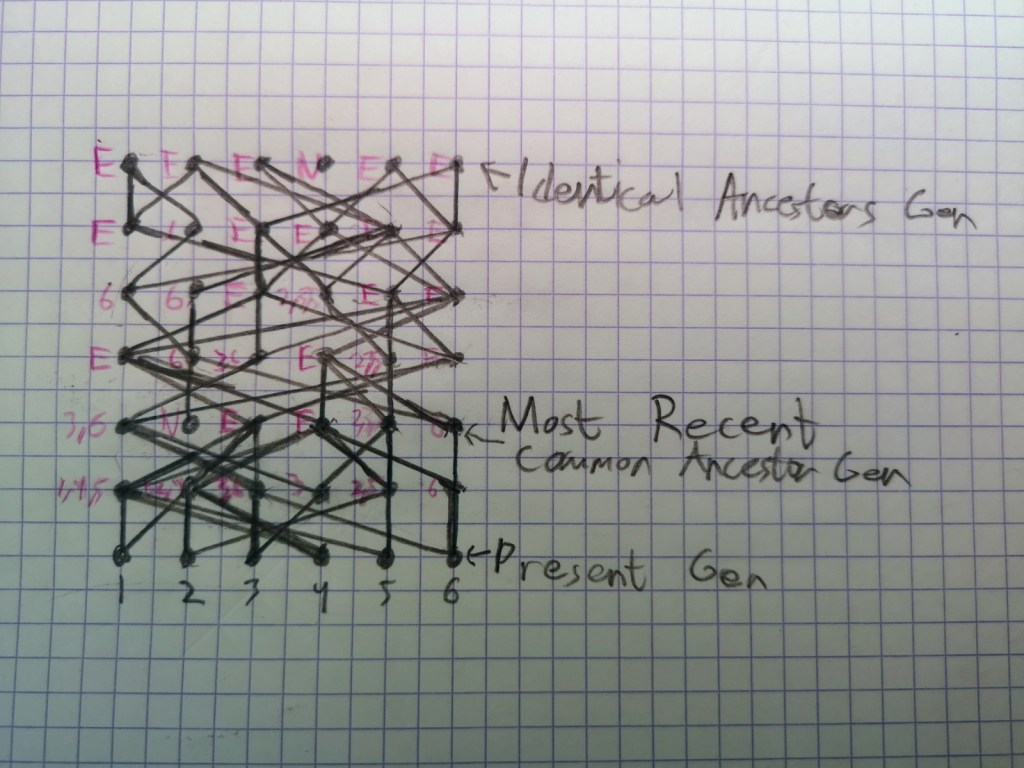 E E N E E
←Identical Ancestors Gen
E E E
6 6 E E
E 6 E
3,6 N E
←Most Recent
Common Ancestor Gen
1,4,5 3 6
←Present Gen
1 2 3 4 5 6